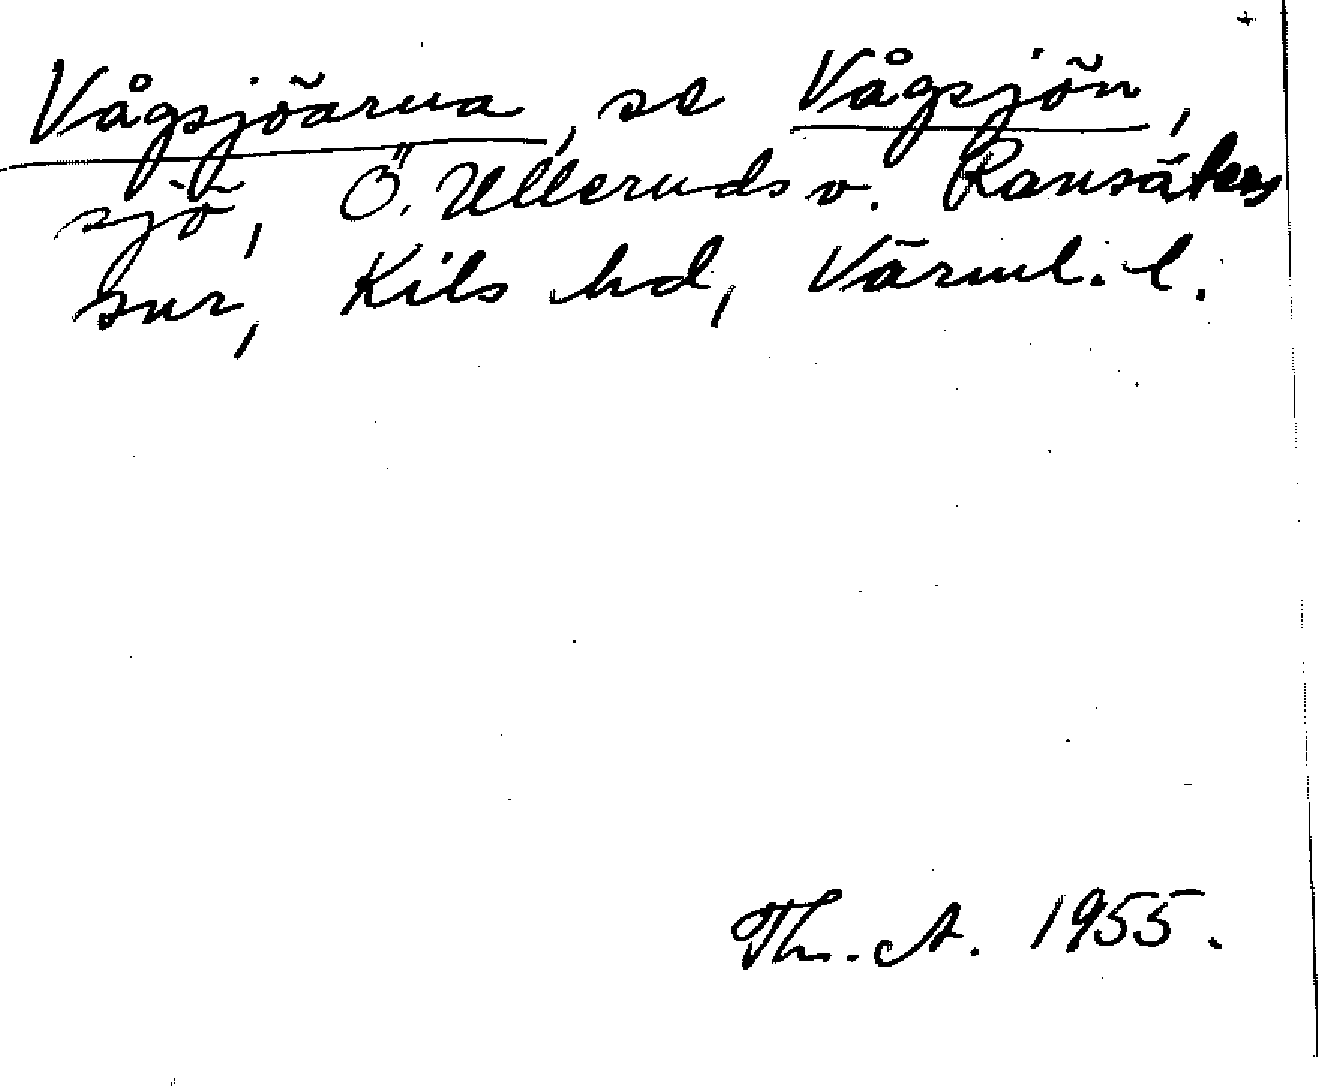 Vågsjöarna, se Vågsjön,
sjö, Ö. Ulleruds o. Ransäters
snr, Kils hd, Värml. l.
Th. A. 1955.